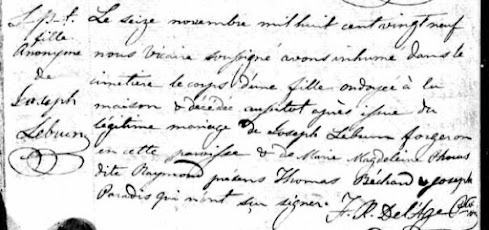 S.p.t.
fille
Anonyme
de
Joseph
Lebrun
Le seize novembre mil huit cent vingt neuf
nous Vicaire soussigné avons inhumé dans le
cimetière le corps d'une fille ondoyée à la
maison & décédée aussitot après issue du
légitime mariage de Joseph Lebrun forgeron
en cette paroisse & de Marie Magdeleine Phocas
dite Raymond présens Thomas Béchard & Joseph
Paradis qui n'ont su signer.